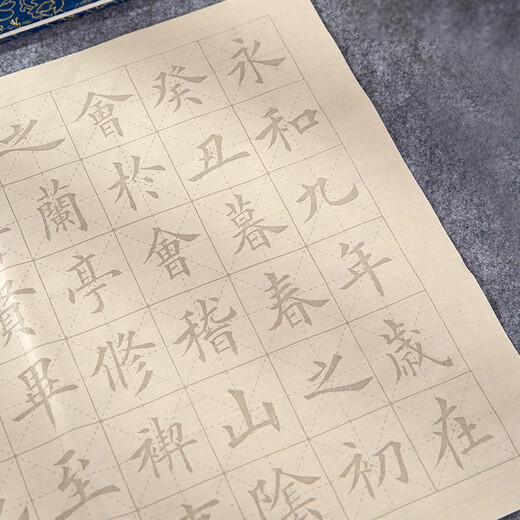 永和九年歲在
癸丑暮春之初
會於會稽山陰
之蘭亭修禊
賢畢至